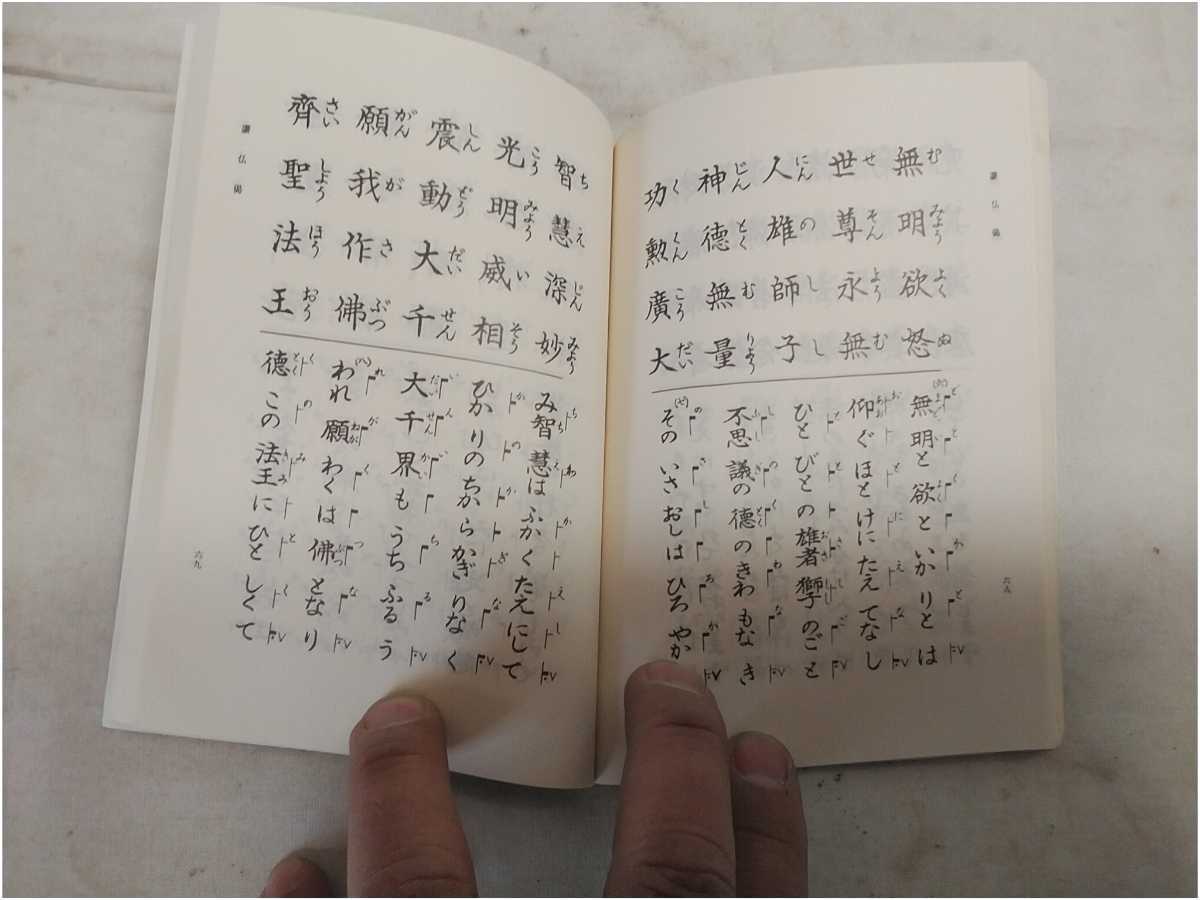 讃仏偈
無明欲怒
世尊永無
人雄師子
神德無量
功勲廣大
無明と欲といかりとは
仰ぐほとけにたえてなし
ひとびとの雄者獅子のごと
不思議の德のきわもなき
そのいさおしはひろやか
六八
智慧深妙
光明威相
震動大千
願我作佛
齊聖法王
み智慧はふかくたえにして
ひかりのちからかぎりなく
大千界もうちふるう
われ願わくは佛となり
德この法王にひとしくて
讃仏偈
六九